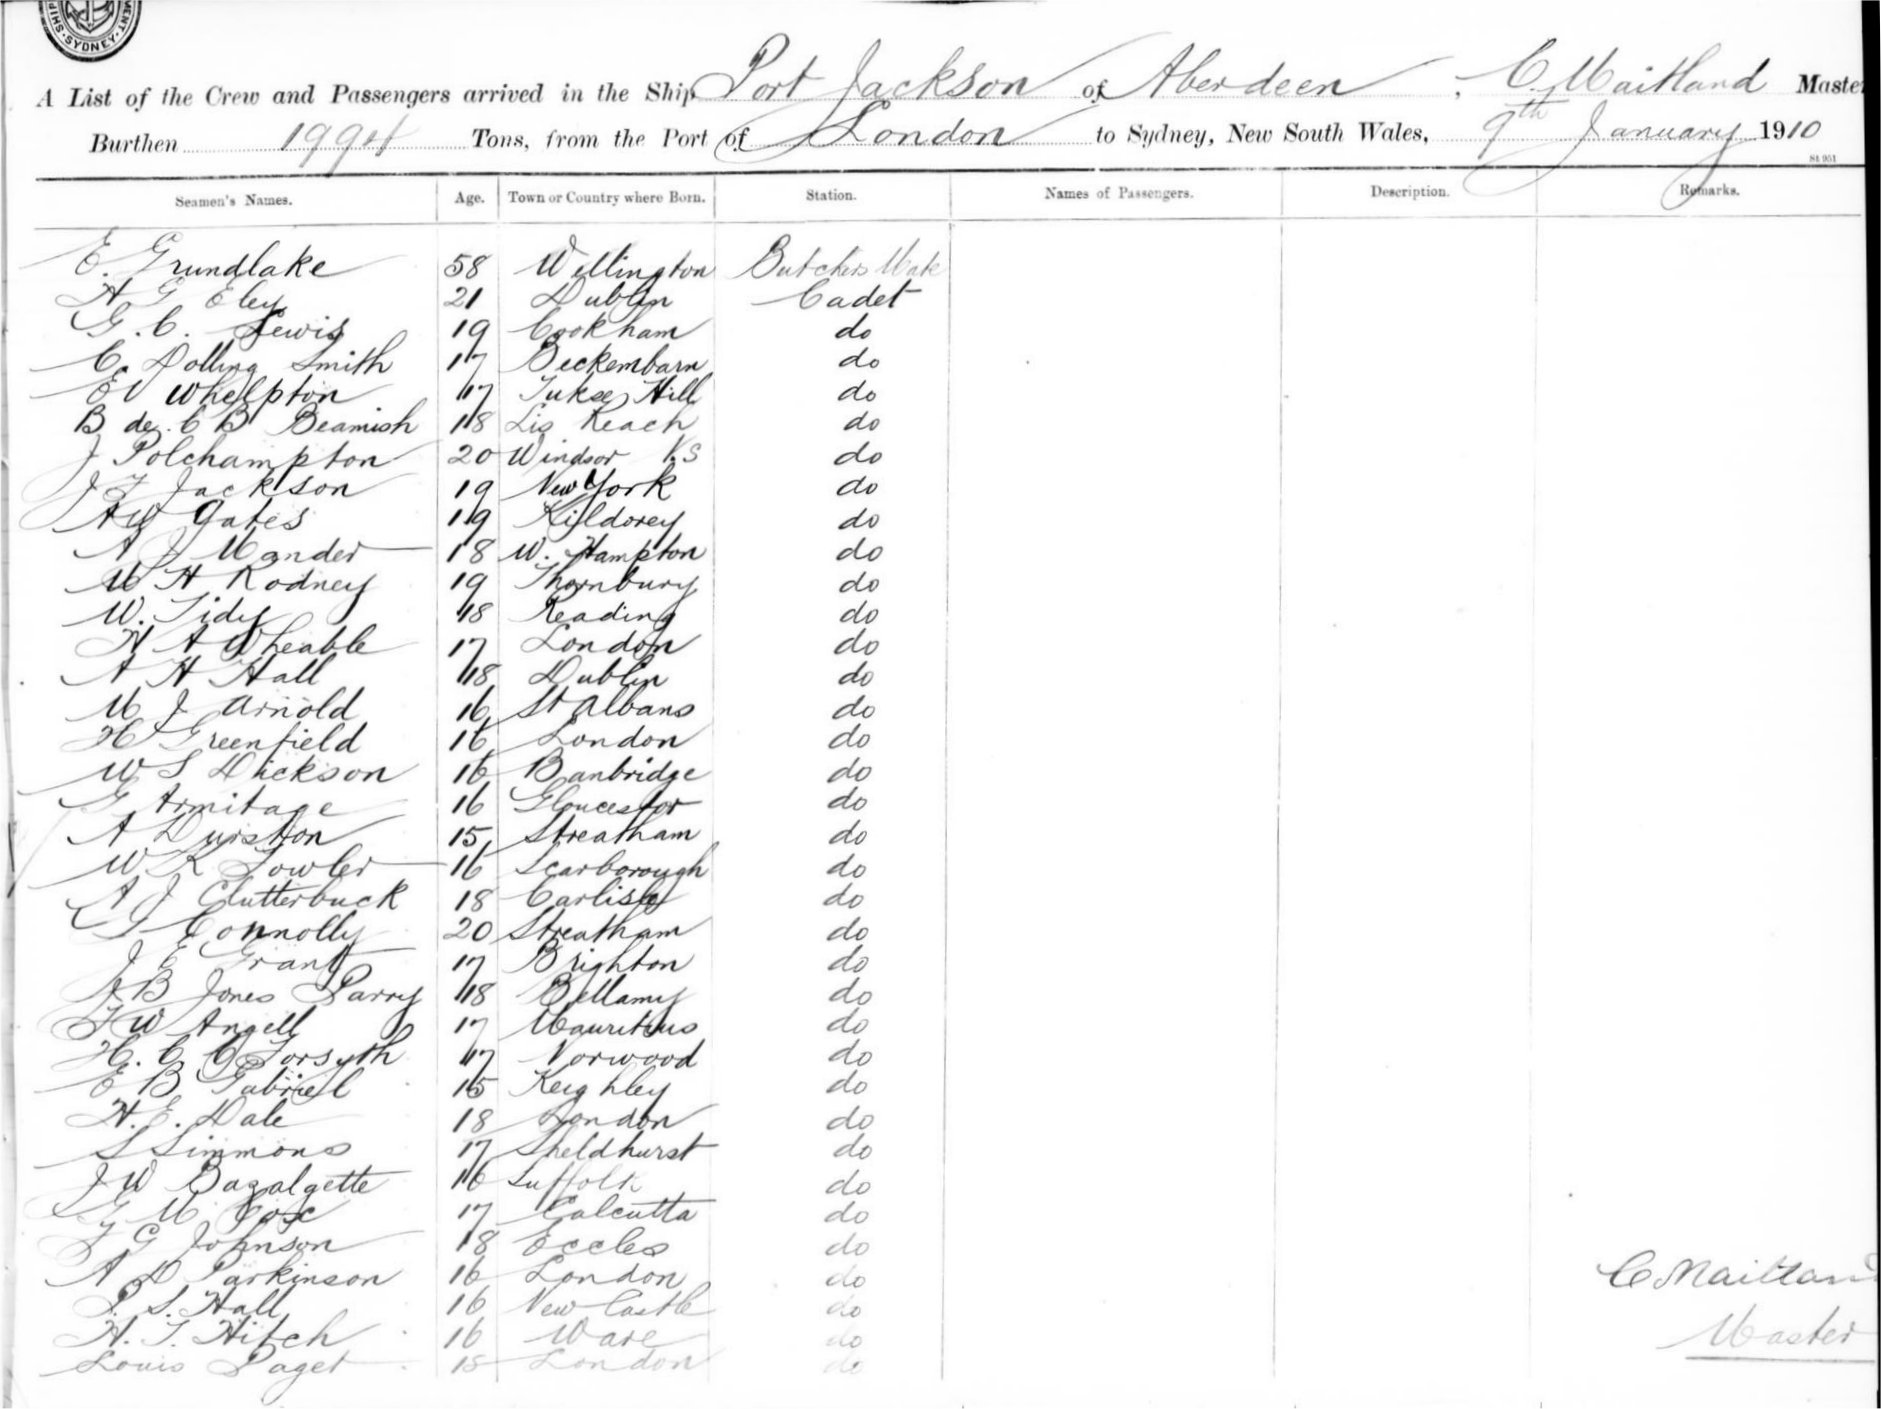 SYDNEY
A List of the Crew and Passengers arrived in the Ship Port Jackson of Aberdeen, C. Maitland Master
Burthen 1994 Tons, from the Port of London to Sydney, New South Wales, 9th January 1910
St 951
Seamen's Names. Age. Town or Country where Born. Station. Names of Passengers. Description. Remarks.
E. Grundlake 58 Wellington Butchers Mate
H G Eley 21 Dublin Cadet
G. C. Lewis 19 Cookham do
C. Dolling Smith 17 Beckembarn do
E V Whelpton 17 Tukse Hill do
B de. C B Beamish 18 Lis Reach do
J Polchampton 20 Windsor do
J F Jackson 19 New York do
A W Gates 19 Kildorey do
A J Mander 18 W. Hampton do
M H Rodney 19 Thornbury do
W. Tidy 18 Reading do
H A Wheable 17 London do
A H Hall 18 Dublin do
M J Arnold 16 St Albans do
H Greenfield 16 London do
W S Dickson 16 Banbridge do
G Armitage 16 Gloucester do
A Durston 15 Streatham do
W R Fowler 16 Scarborough do
A J Clutterbuck 18 Carlisle do
Connolly 20 Streatham do
J E Grant 17 Brighton do
J B Jones Parry 18 Bellamy do
F W Angell 17 Mauritius do
H. C. C Forsyth 17 Norwood do
E B Gabriel 15 Keighley do
H. E. Dale 18 London do
S Simmons 17 Sheldhurst do
J W Bazalgette 16 Suffolk do
G M Cox 17 Calcutta do
F G Johnson 18 Eccles do
A D Parkinson 16 London do C Maitland
P. S. Hall 16 New Castle do
H. T. Hitch 16 Ware do Master
Louis Paget 18 London do